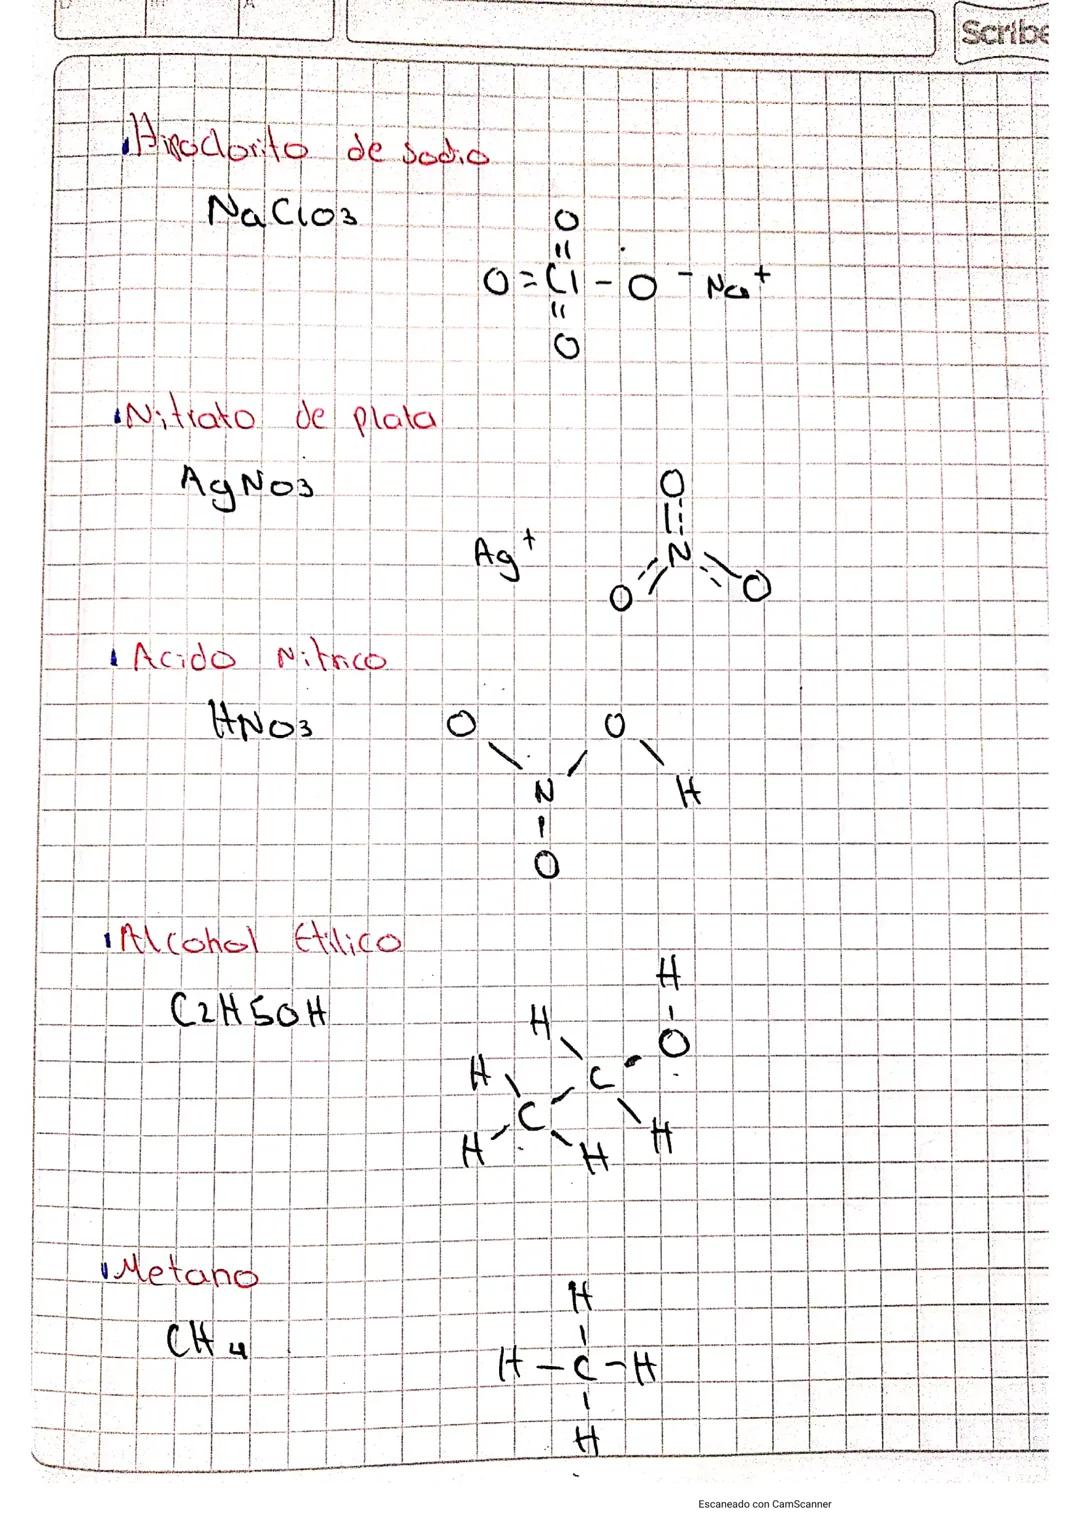 Scribe
Hipoclorito de sodio
NaClO3
O
=
O=Cl-O - Na+
=
O
Nitrato de plata
AgNO3
O
Ag+ N
O O
Acido Nitrico
HNO3
O O
N H
O
Alcohol Etilico
C2H5OH
H
H O
H C
C
H H H
Metano
CH4
H
H-C-H
H
Escaneado con CamScanner